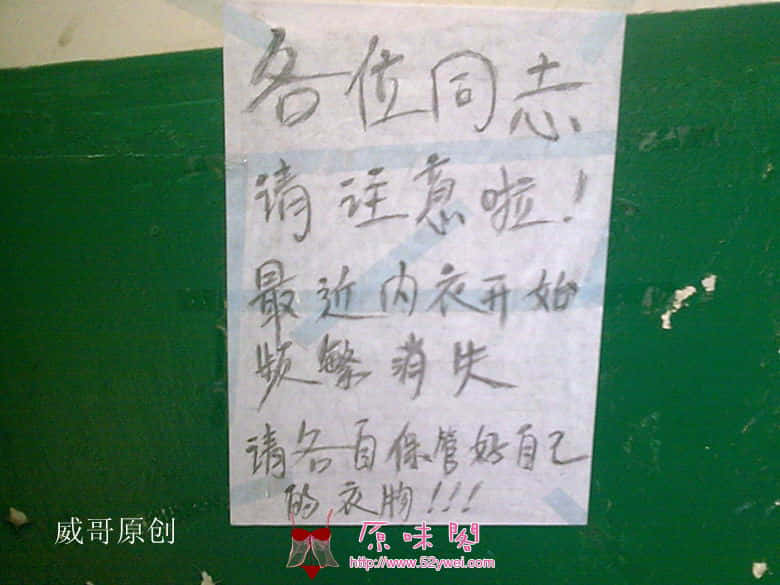 各位同志
请注意啦!
最近内衣开始
频繁消失
请各自保管好自己
的衣物!!!
威哥原创
原味閣
http://www.52ywei.com